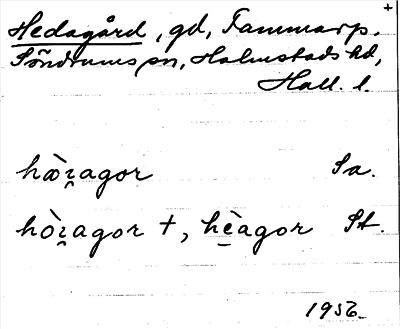 +
Hedagård, gd, Fammarp.
Söndrums sn, Halmstads hd,
Hall. l.
hæ̀ɪ̯agor Sa.
hòɪ̯agor +, hè̠agor St.
1956.